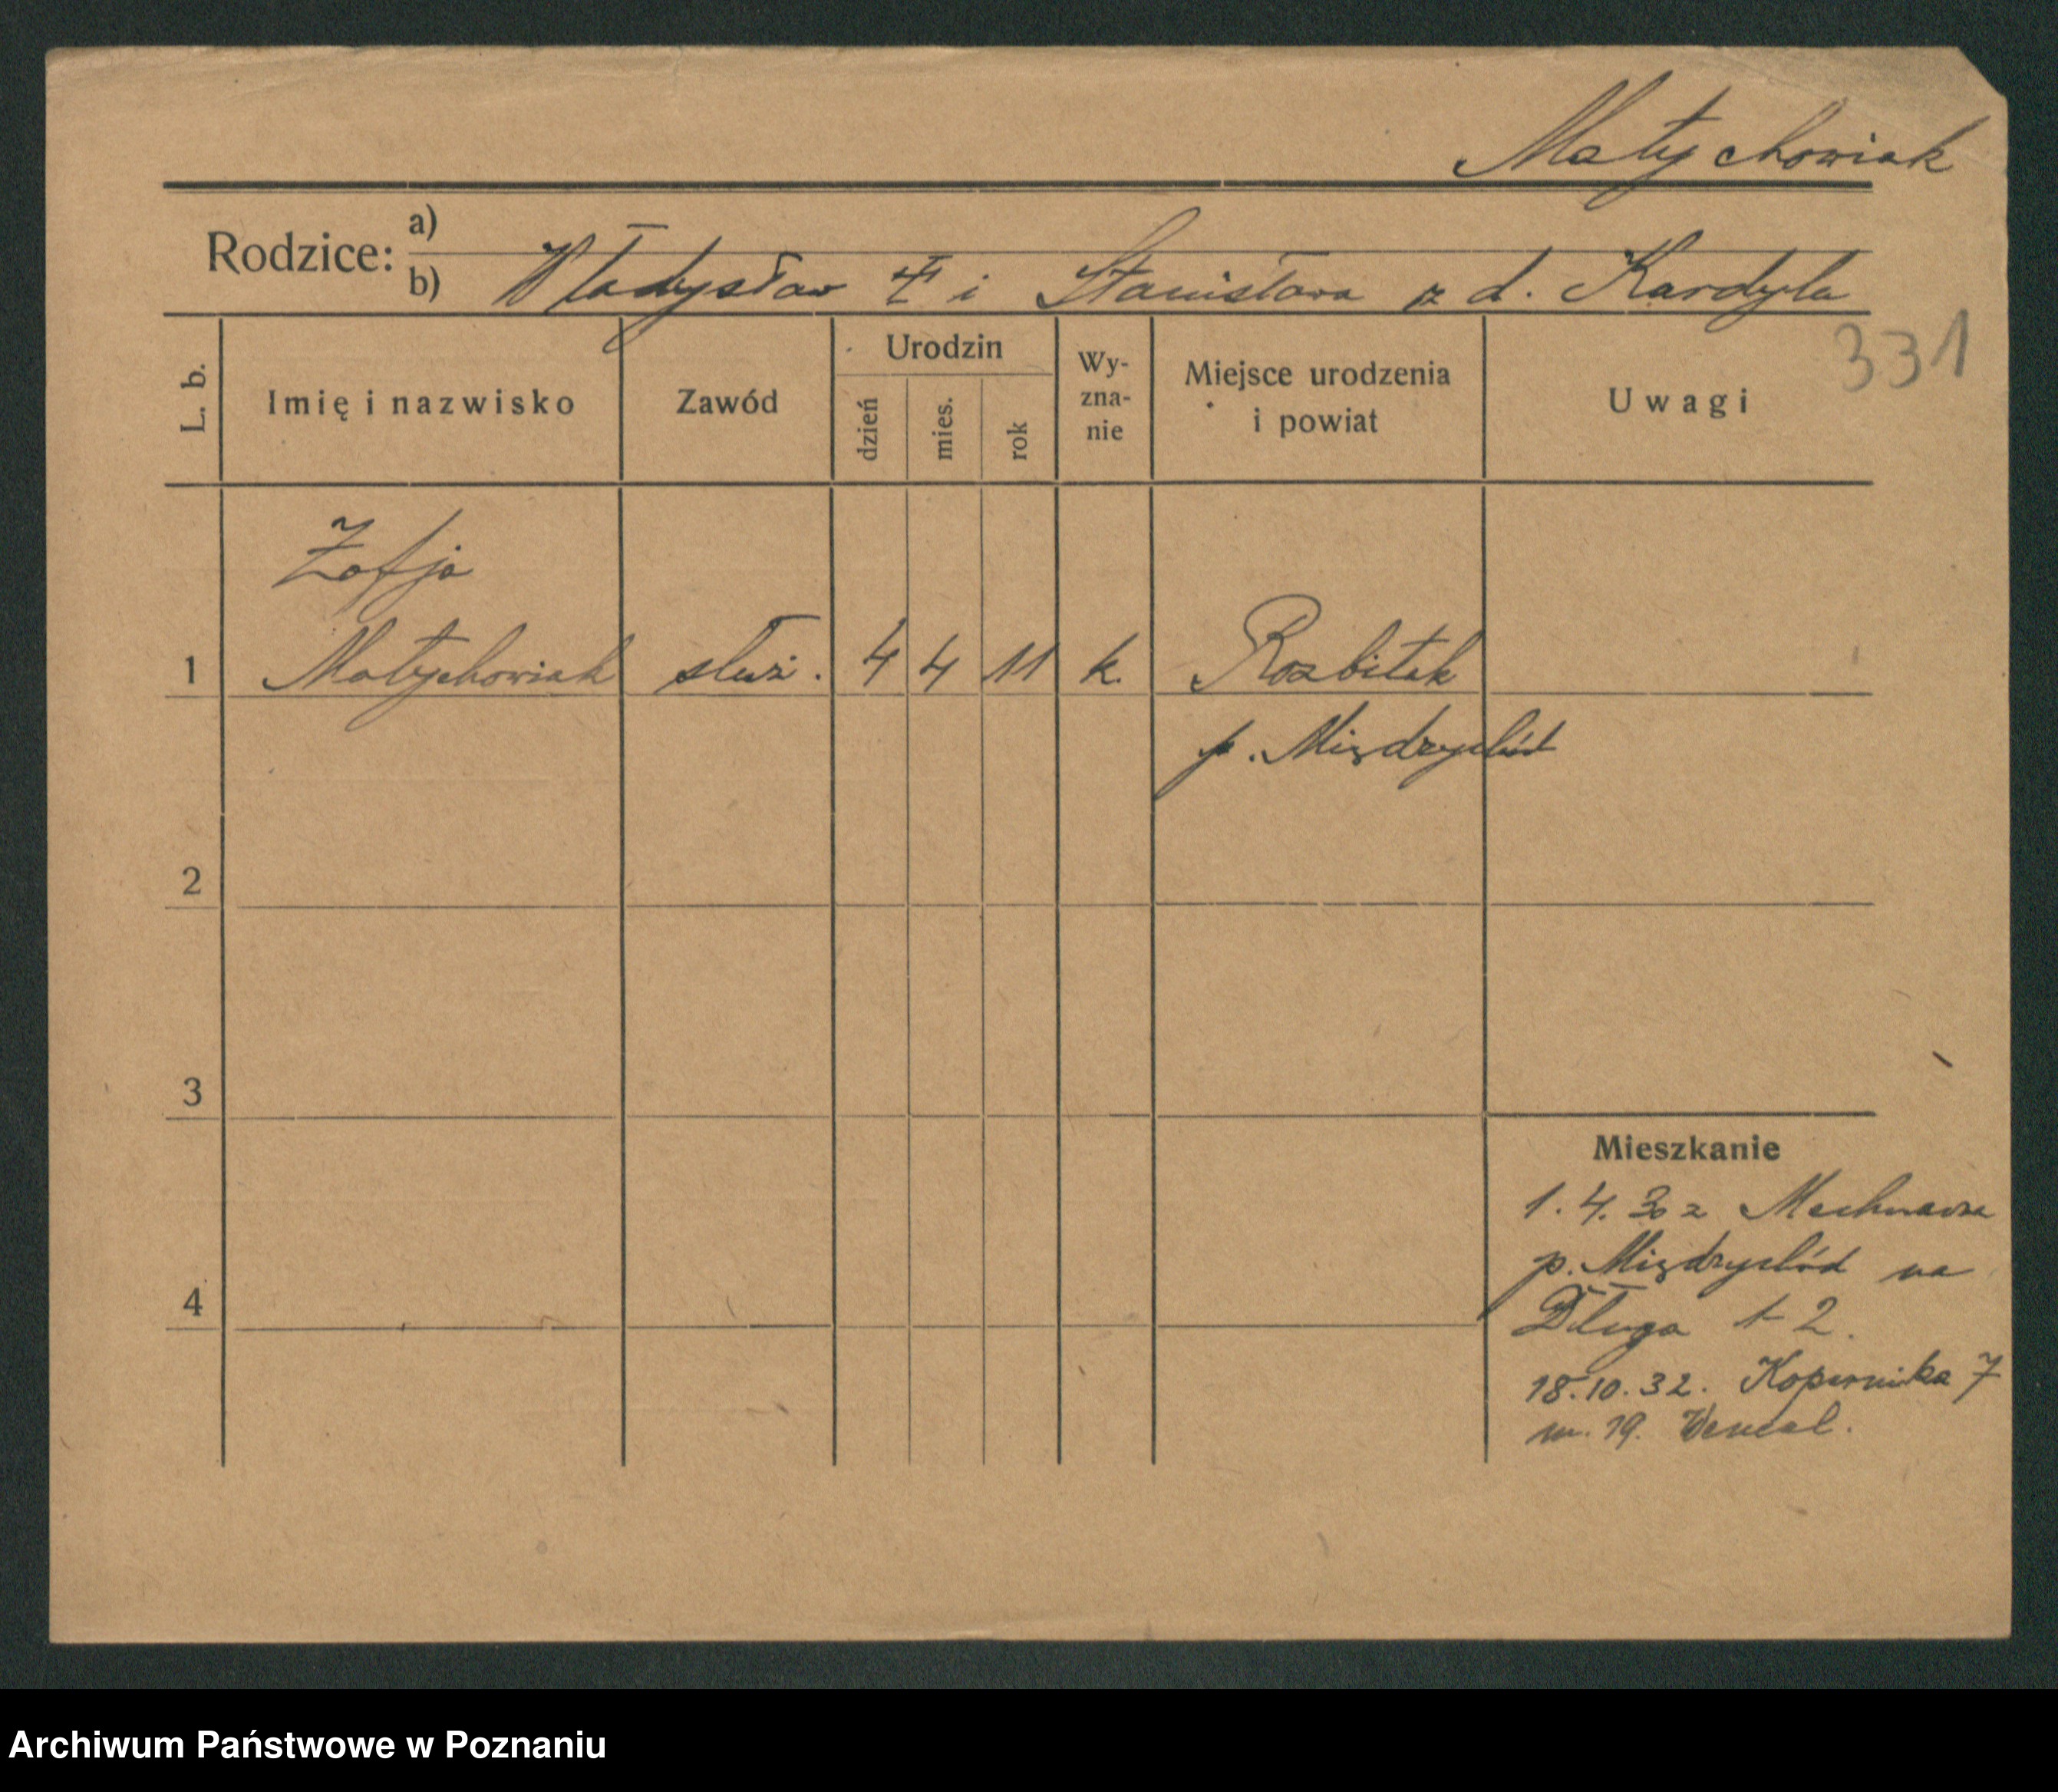 Matychowiak
Rodzice: a)
b) Władysław i Stanisława z d. Kardyla
331
L. b. Imię i nazwisko Zawód Urodzin dzień mies. rok Wy-zna-nie Miejsce urodzenia i powiat Uwagi
Zofja
1 Matychowiak służ. 4 4 11 k. Rozbitek
p. Międzychód
2
3
Mieszkanie
1. 4. 30 z
p. Międzychód na
4 Długa 12.
18.10.32. Kopernika 7
m. 19. Wencel.
Archiwum Państwowe w Poznaniu